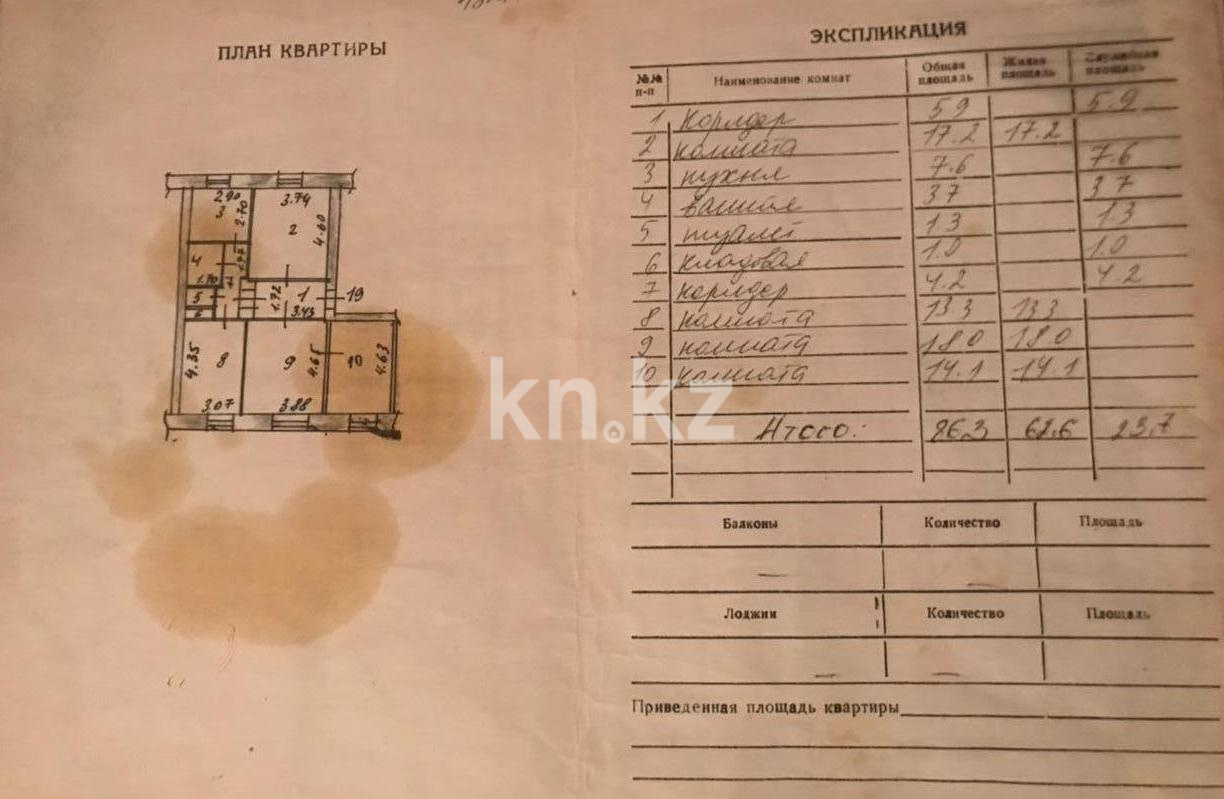 ПЛАН КВАРТИРЫ
2.90
3
2.70
3.74
2
4.60
4
1.70
7
5
6
1.72
1
3.43
19
4.35
8
3.07
9
4.65
3.88
10
4.63
ЭКСПЛИКАЦИЯ
№№ п-п Наименование комнат Общая площадь Жилая площадь Служебная площадь
1 Коридор 5.9 5.9
2 комната 17.2 17.2
3 кухня 7.6 7.6
4 ванная 3.7 3.7
5 туалет 1.3 1.3
6 кладовая 1.0 1.0
7 коридор 4.2 4.2
8 комната 13.3 13.3
9 комната 18.0 18.0
10 комната 14.1 14.1
Итого: 86.3 62.6 23.7
Балконы Количество Площадь
— —
Лоджии Количество Площадь
— —
Приведенная площадь квартиры
kn.kz